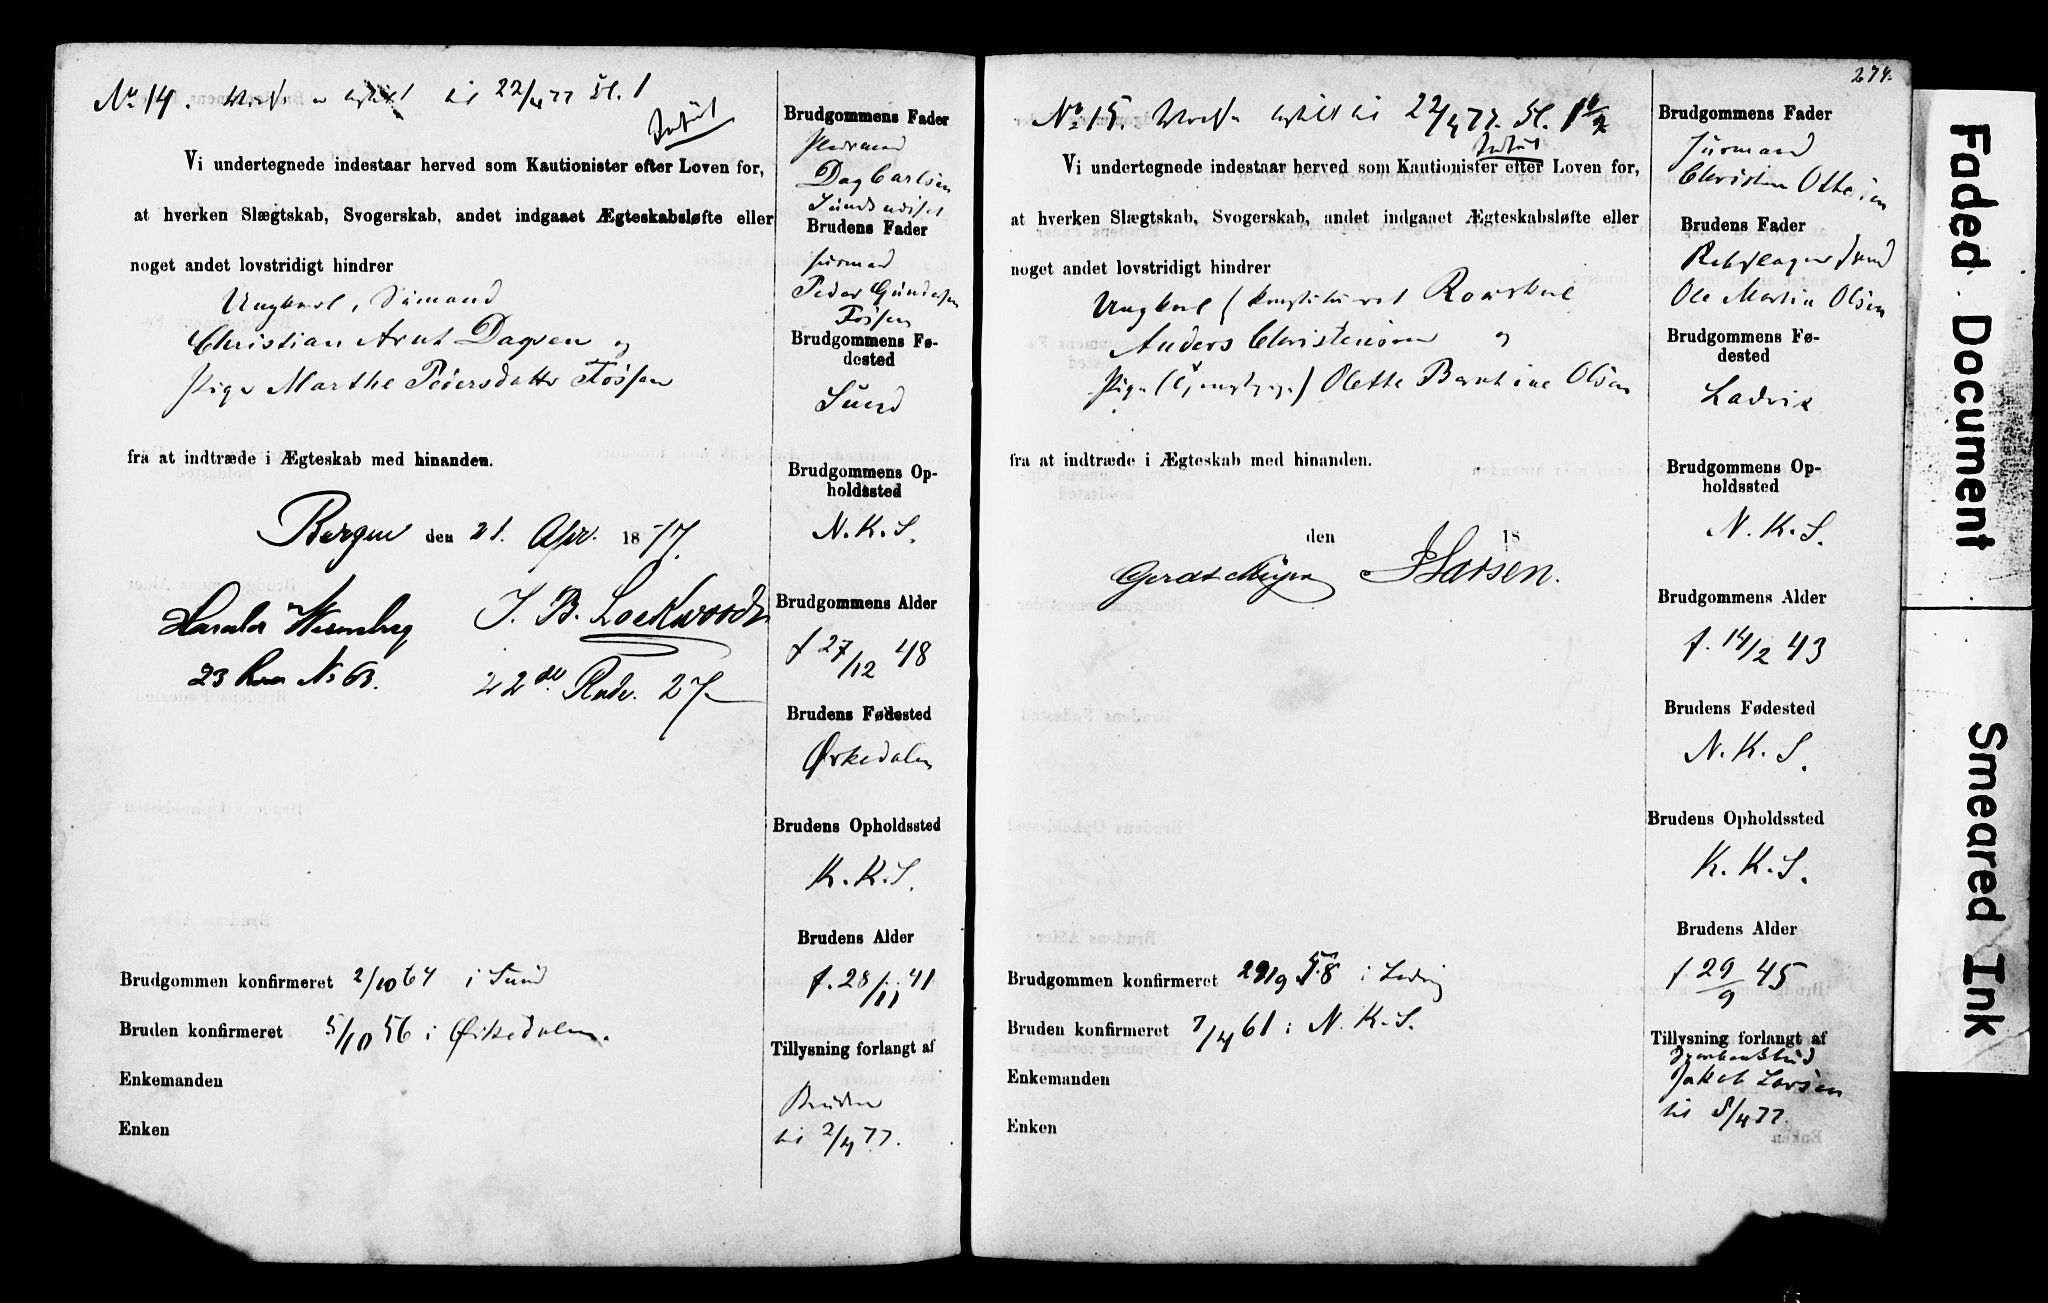 No 14. til 22/4 77 Kl. 1
Vi undertegnede indestaar herved som Kautionister efter Loven for,
at hverken Slægtskab, Svogerskab, andet indgaaet Ægteskabsløfte eller
noget andet lovstridigt hindrer
Ungkarl, Sømand
Christian Arnt Dagsen og
Pige Marthe Pedersdatter Fossen
fra at indtræde i Ægteskab med hinanden.
Bergen den 21. Apr. 1877.
Harald J. B. Lockwood
23 No 63. 22de Rode. 27
Brudgommen konfirmeret 2/10 64 i Sund
Bruden konfirmeret 5/10 56 i Ørkedalen.
Enkemanden
Enken
Brudgommens Fader
Dag Carlsen
Brudens Fader
Husmand
Peder Gundersen
Fossen
Brudgommens Fø-
dested
Sund
Brudgommens Op-
holdssted
N. K. S.
Brudgommens Alder
f 27/12 48
Brudens Fødested
Ørkedalen
Brudens Opholdssted
K. K. S.
Brudens Alder
f. 28/11 41
Tillysning forlangt af
Bruden
til 2/4 77.
274.
No 15. til 22/4 77. Kl. 1 1/2
Vi undertegnede indestaar herved som Kautionister efter Loven for,
at hverken Slægtskab, Svogerskab, andet indgaaet Ægteskabsløfte eller
noget andet lovstridigt hindrer
Ungkarl
Anders Christensen og
Pige Olette Berntine Olsen
fra at indtræde i Ægteskab med hinanden.
den 18
Gerdt Meyer Larsen.
Brudgommen konfirmeret 29/9 58 i Ladvig
Bruden konfirmeret 7/4 61 i N. K. S.
Enkemanden
Enken
Brudgommens Fader
Husmand
Christen Ottesen
Brudens Fader
Rebslagersvend
Ole Martin Olsen
Brudgommens Fø-
dested
Ladvik
Brudgommens Op-
holdssted
N. K. S.
Brudgommens Alder
f. 14/2 43
Brudens Fødested
N. K. S.
Brudens Opholdssted
K. K. S.
Brudens Alder
f. 29/9 45
Tillysning forlangt af
Jakob Larsen
til 8/4 77.
Faded Document
Smeared Ink